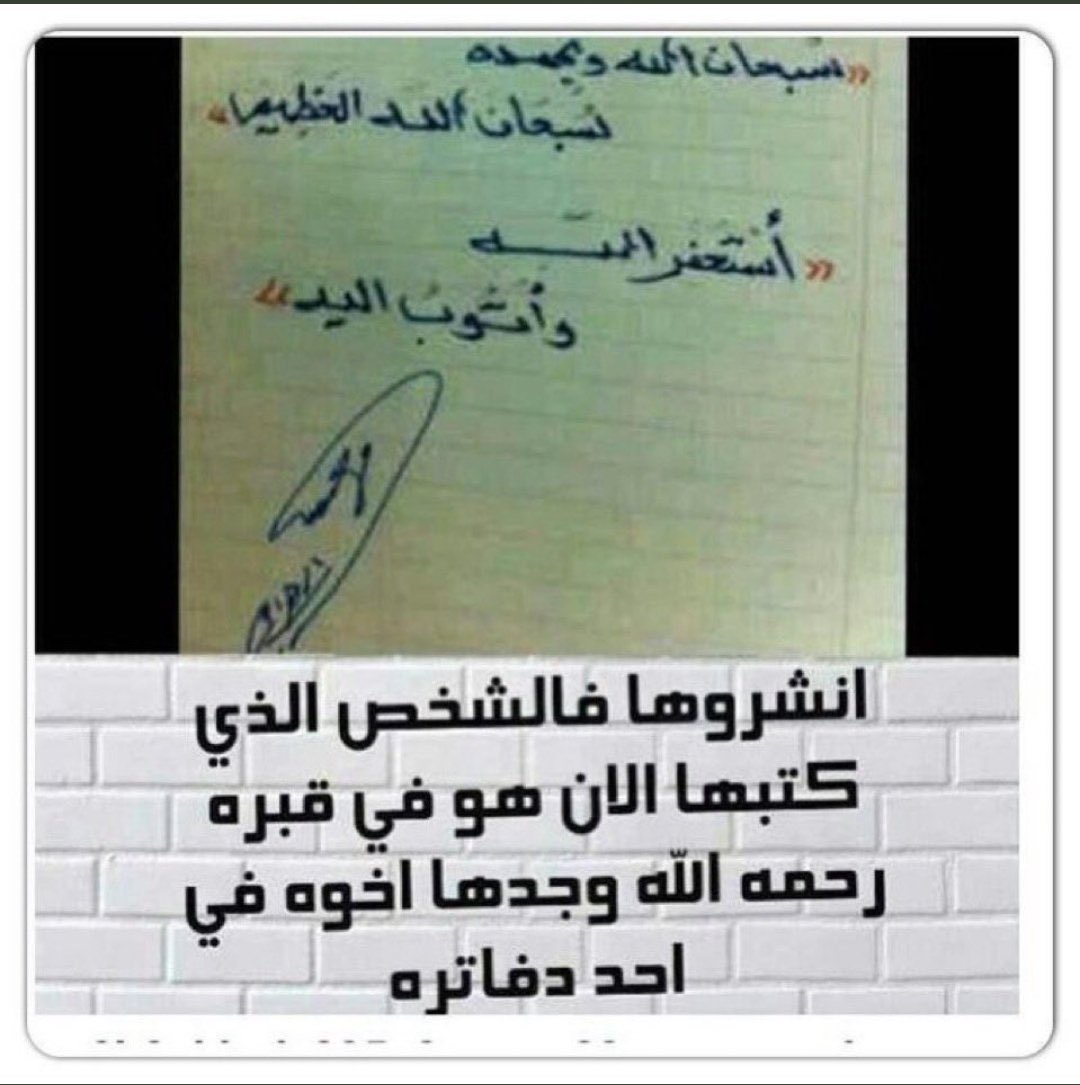 «سبحان الله وبحمده
سبحان الله العظيم»
«أستغفر الله
وأتوب إليه»
انشروها فالشخص الذي
كتبها الان هو في قبره
رحمه الله وجدها اخوه في
احد دفاتره